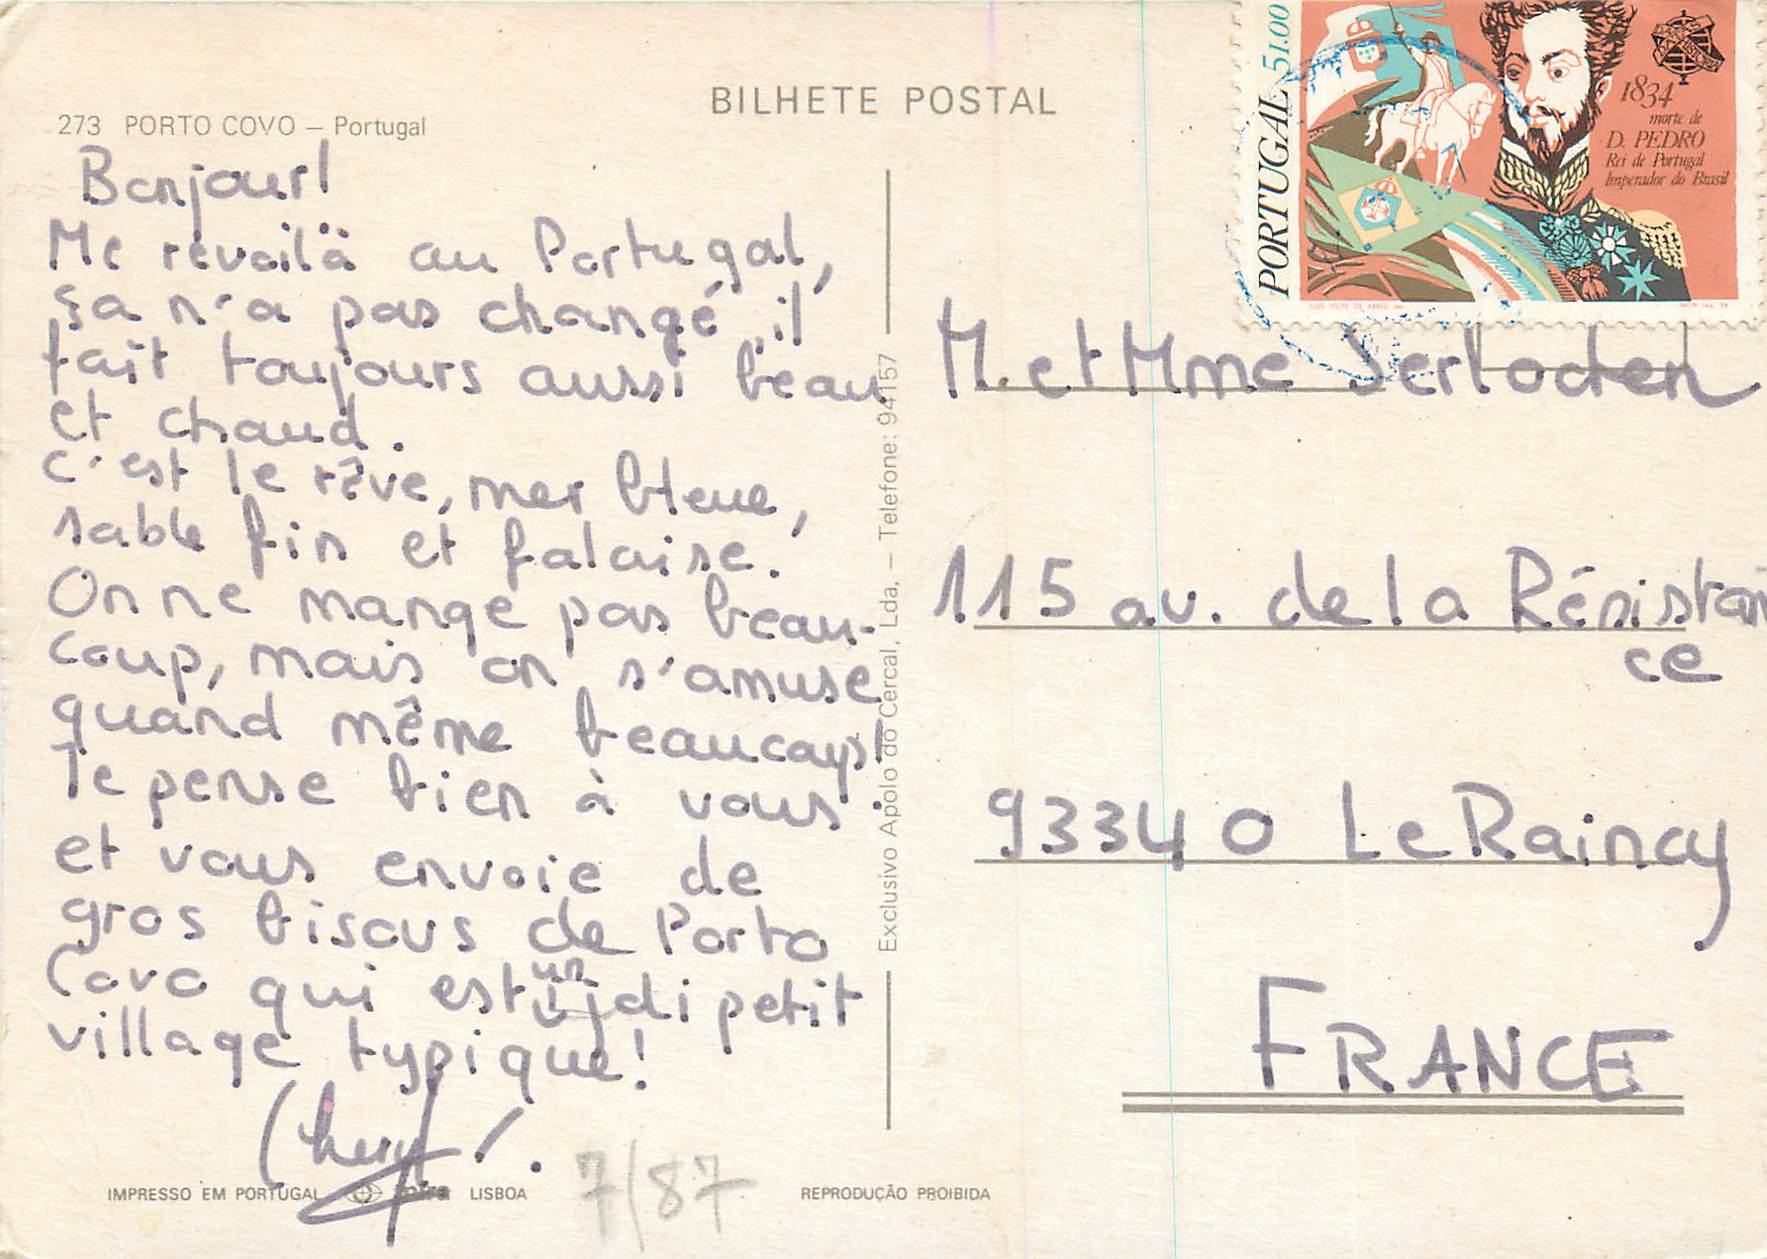 BILHETE POSTAL
273 PORTO COVO – Portugal
Bonjour!
Me revoilà au Portugal,
ça n'a pas changé, il
fait toujours aussi beau
et chaud.
C'est le rêve, mer bleue,
sable fin et falaise.
On ne mange pas beau-
coup, mais on s'amuse
quand même beaucoup!
Je pense bien à vous
et vous envoie de
gros bisous de Porto
Covo qui est un joli petit
village typique!
IMPRESSO EM PORTUGAL mira LISBOA
7/87
REPRODUÇÃO PROIBIDA
Exclusivo Apolo do Cercal, Lda. – Telefone: 94157
PORTUGAL 51.00
1834
morte de
D. PEDRO
Rei de Portugal
Imperador do Brasil
M. et Mme
115 av. de la Résistan
ce
93340 Le Raincy
FRANCE